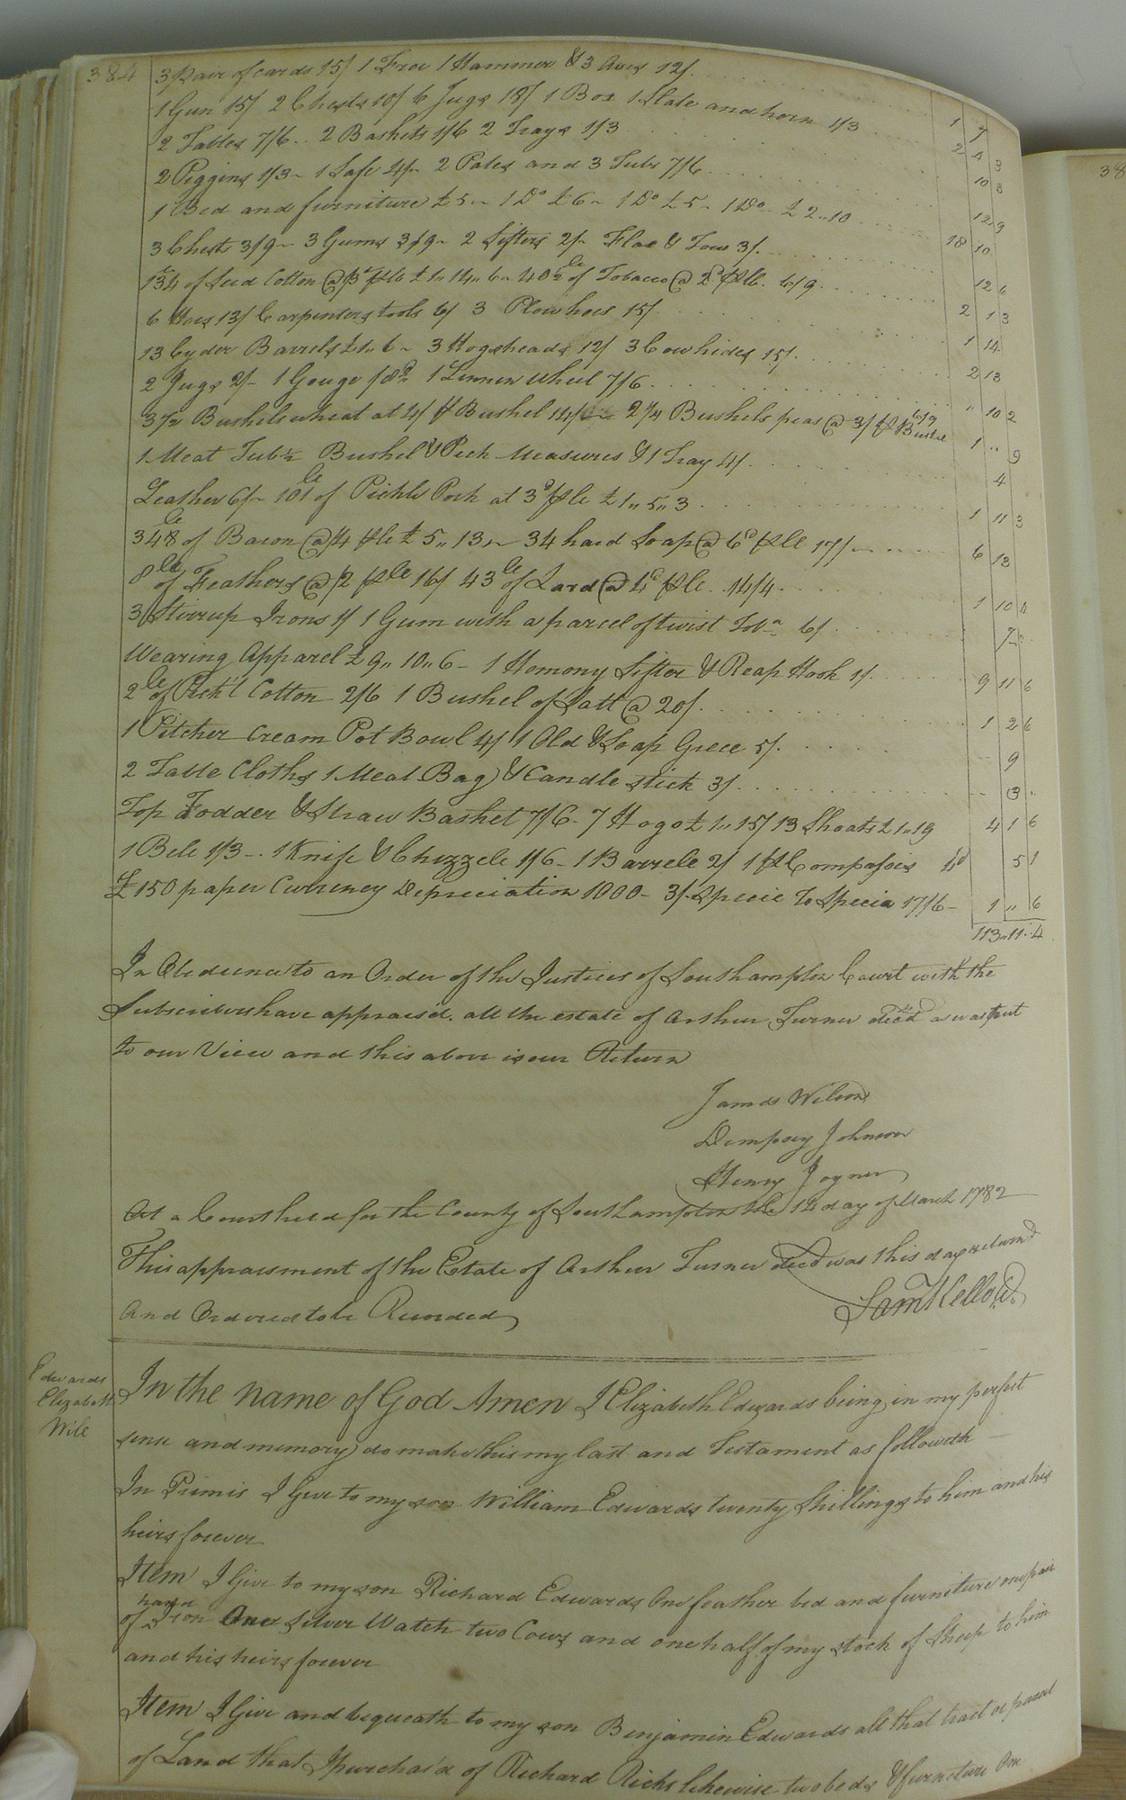 384
3 Pair of cards 15/ 1 Froe 1 Hammer & 3 Axes 12/ 1 7
1 Gun 15/ 2 Chests 10/ 6 Jugs 18/ 1 Box 1 Slate and horn 1/3 2 4 3
2 Tables 7/6 2 Baskets 1/6 2 Trays 1/3 10 3
2 Piggins 1/3 1 Safe 4/ 2 Pales and 3 Tubs 7/6 12 9
1 Bed and furniture £5 1 Do £6 1 Do £5 1 Do £2 10 18 10
3 Chests 3/9 3 Gums 3/9 2 Sifters 2/ Flax & Tow 3/ 12 6
134 of Seed Cotton @ 3d pr lb £1 14 6 40 lb of Tobacco @ 2d pr lb 6/9 2 1 3
6 Hoes 13/ Carpenters tools 6/ 3 Plow hoes 15/ 1 14
13 Cyder Barrels £1 6 3 Hogsheads 12/ 3 Cowhides 15/ 2 13
2 Jugs 2/ 1 Gouge /8d 1 Linnen Wheel 7/6 " 10 2
3 1/2 Bushels wheat at 4/ pr Bushel 14/ 2 1/4 Bushels peas @ 3/ pr Bushel 6/9 1 " 9
1 Meat Tub 1/2 Bushel & Peck Measures & 1 Tray 4/ 4
Leather 6/ 101 lb of Pickle Pork at 3d pr lb £1 5 3 1 11 3
348 lb of Bacon @ /4 pr lb £5 13 34 hard Soap @ 6d pr lb 17/ 6 13
8 lb of Feathers @ /2 pr lb 16/ 43 lb of Lard @ 4d pr lb 14/4 1 10 4
3 Stirrup Irons 1/ 1 Gum with a parcel of twist Toba 6/ 7
Wearing Apparel £9 10 6 1 Homony Sifter & Reap Hook 1/ 9 11 6
2 lb of Pick'd Cotton 2/6 1 Bushel of Salt @ 20/ 1 2 6
1 Pitcher Cream Pot Bowl 4/ 1 Old & Soap Grece 5/ 9
2 Table Cloths 1 Meal Bag & Candle stick 3/ 3
Top Fodder & Straw Basket 7/6 7 Hogs £1 15/ 13 Shoats £1 19 4 1 6
1 Bell 1/3 1 Knife & Chizzele 1/6 1 Barrele 2/ 1 pr Compasses 4d 5 1
£150 paper Currency Depreciation 1000 3/ Specie To Specia 17/6 1 " 6
113 11 4
In Obedience to an Order of the Justices of Southampton Court with the
Subscribers have appraised all the estate of Arthur Turner decd as was put
to our View and this above is our Return
James Wilson
Dempsey Johnson
Henry Joyner
At a Court held for the County of Southampton the 14 day of March 1782
This appraisment of the Estate of Arthur Turner decd was this day returned
And Ordered to be Recorded
Saml Kello
Edwards
Elizabeth
Will
In the name of God Amen I Elizabeth Edwards being in my perfect
sense and memory do make this my last and Testament as followeth
In Primis I Give to my son William Edwards twenty Shillings to him and his
heirs forever
Item I Give to my son Richard Edwards One feather bed and furniture one pair
of hand Iron One Silver Watch two Cows and one half of my stock of Sheep to him
and his heirs forever
Item I Give and bequeath to my son Benjamin Edwards all that tract or parcel
of Land that I purchas'd of Richard Ricks likewise two beds & furniture One
38